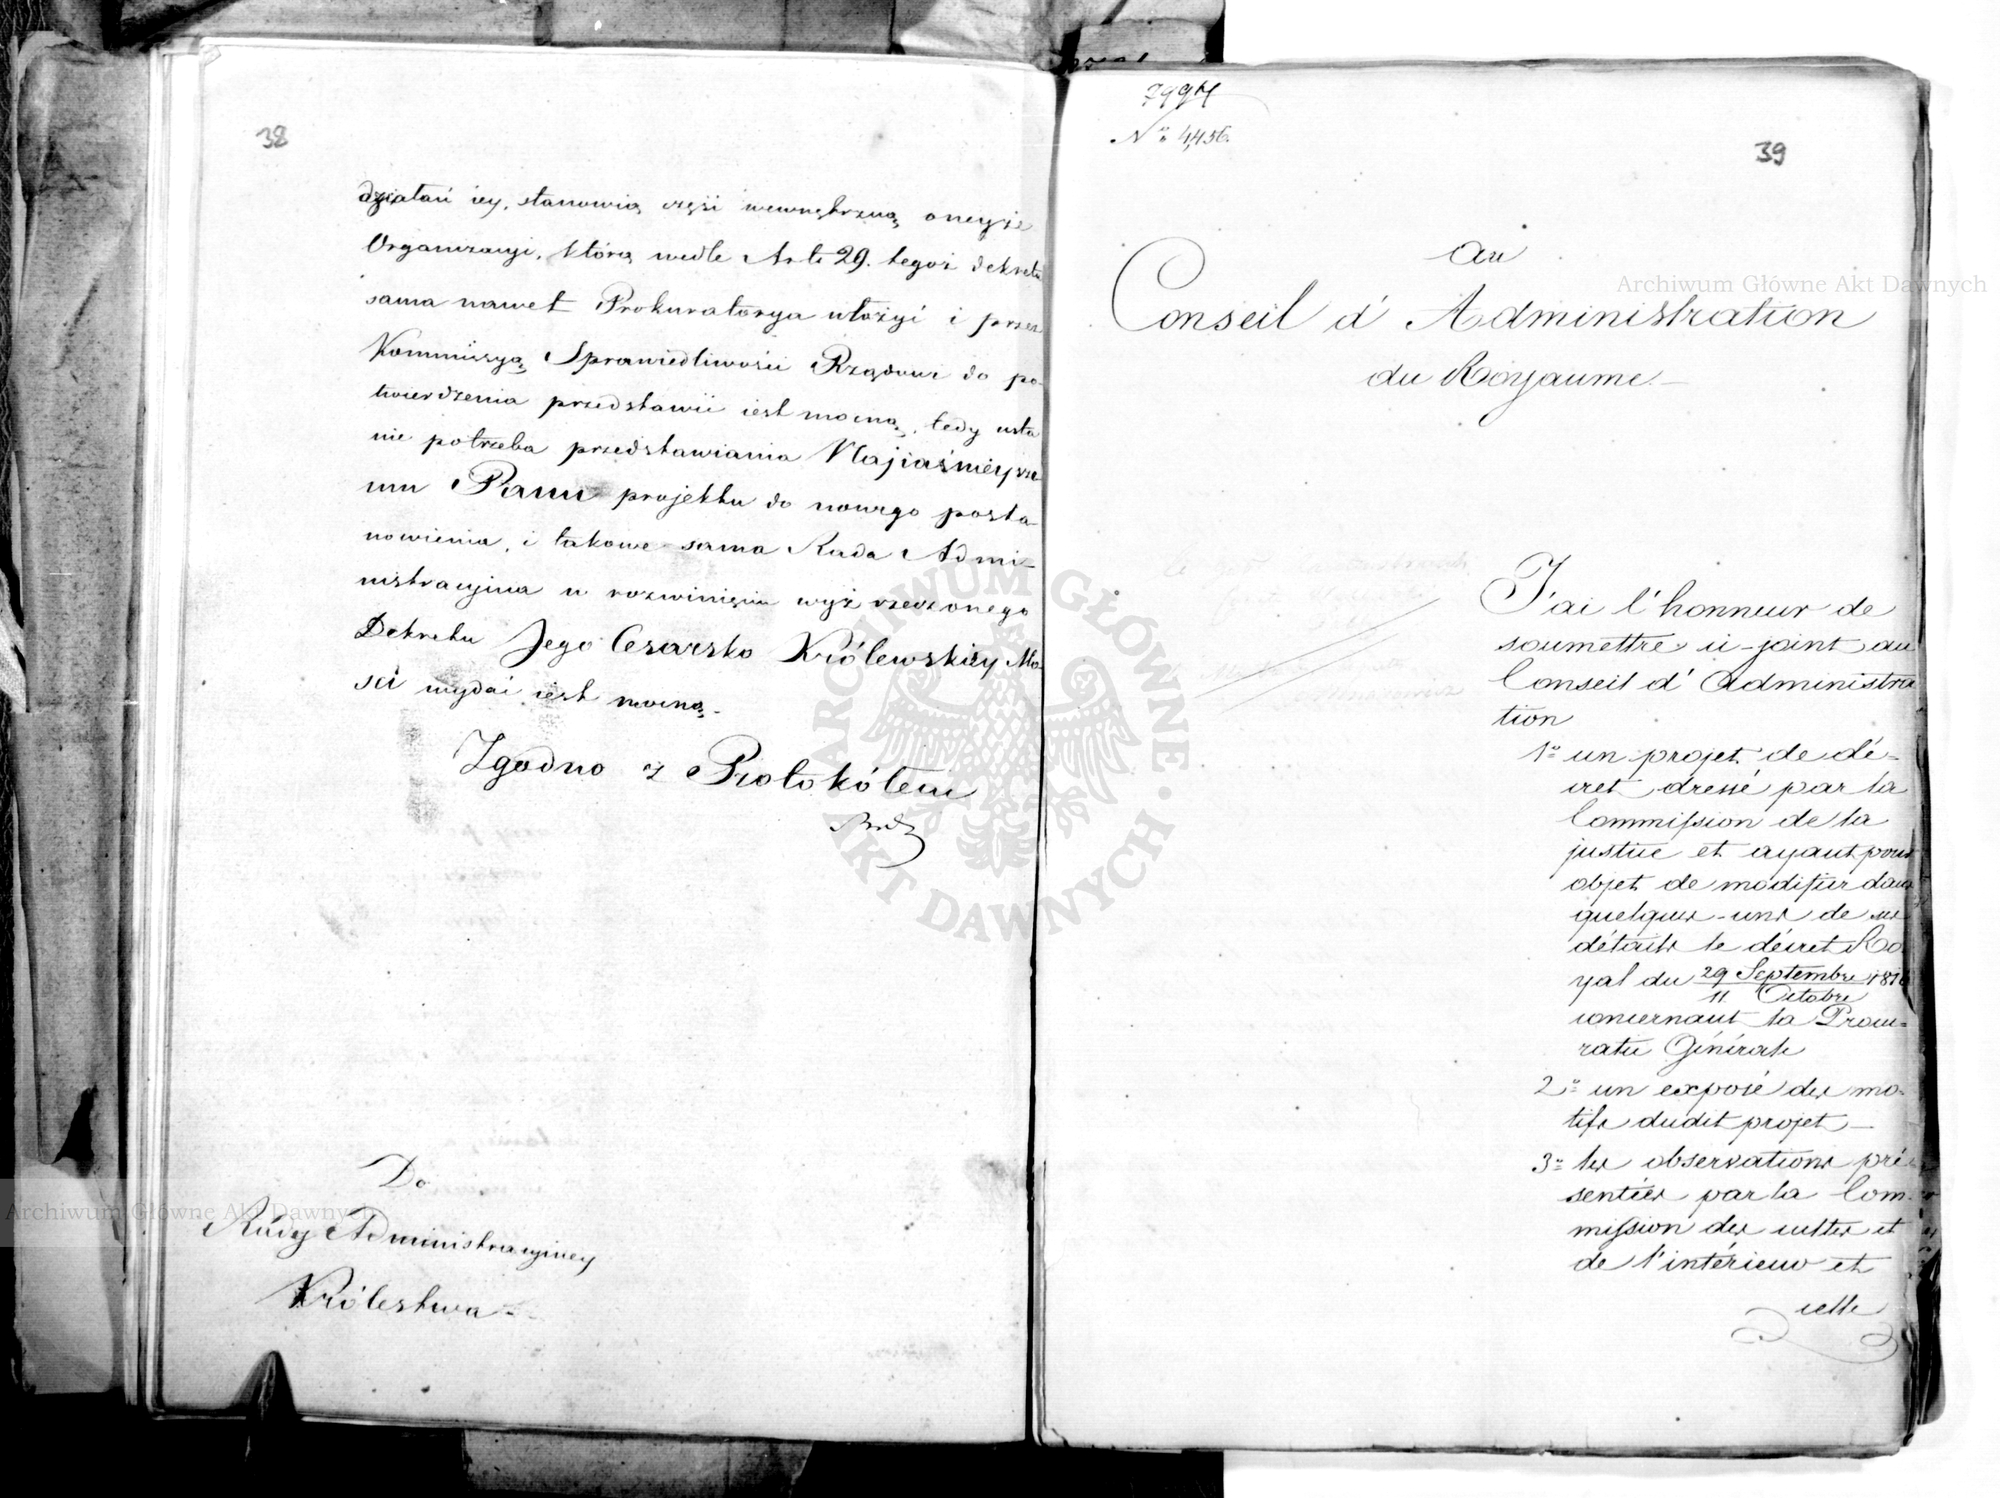 38
działań iey, stanowią części wewnętrzną oneyże
Organizacyi, którą wedle Art: 29. tegoż dekretu
sama nawet Prokuratorya ułożyć i przez
Kommissyą Sprawiedliwości Rządowi do po-
twierdzenia przedstawić iest mocną, tedy usta
nie potrzeba przedstawiania Najiaśnieysze-
mu Panu projektu do nowego posta-
nowienia, i takowe sama Rada Admi-
nistracyjna w rozwinięciu wyż rzeczonego
Dekretu Jego Cesarsko Królewskiey Mo-
ści wydać iest mocną.
Zgodno z Protokółem
Do
Rady Administracyiney
Królestwa
7997
No 4,456.
39
Au
Conseil d'Administration
du Royaume.
J'ai l'honneur de
soumettre ci-joint au
Conseil d'Administra
tion
1o un projet de dé-
cret dressé par la
Commission de la
justice et ayant pour
objet de modifier dans
quelques-uns de ses
détails le décret Ro-
yal du 29 Septembre 1816
11 Octobre
concernant la Procu-
ratie Générale
2o un exposé des mo-
tifs dudit projet
3o les observations pré-
sentées par la Com-
mission des cultes et
de l'intérieur et
celle
Archiwum Główne Akt Dawnych
Archiwum Główne Akt Dawnych
ARCHIWUM GŁÓWNE · AKT DAWNYCH ·